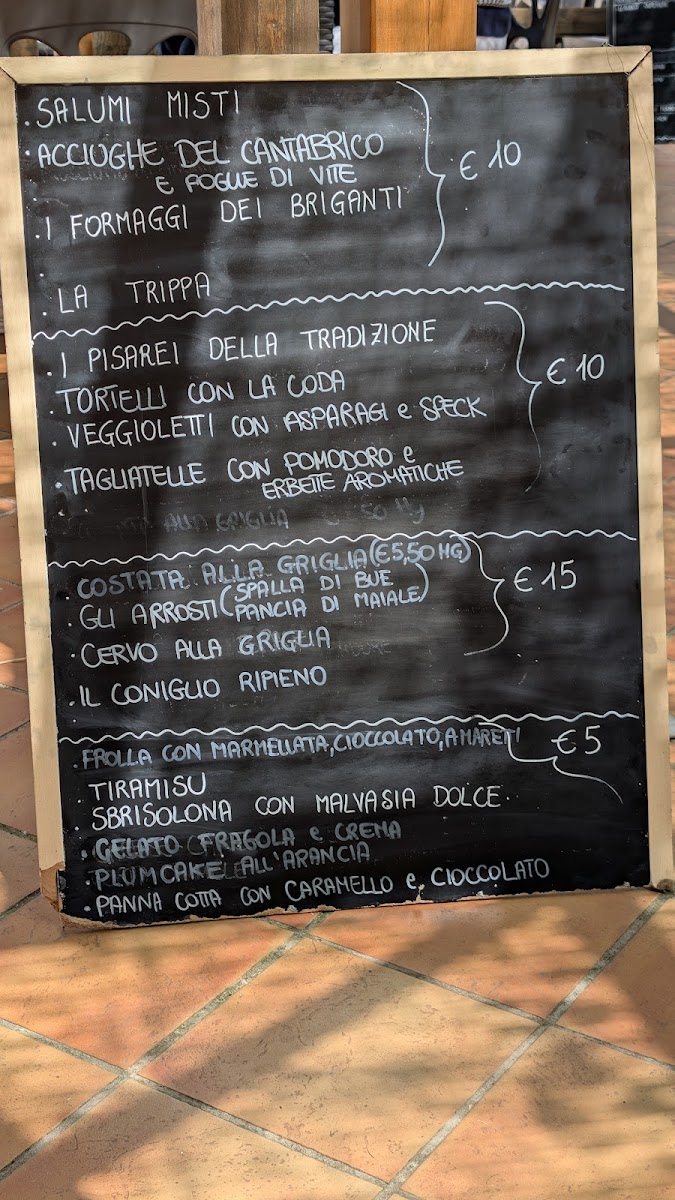 . SALUMI MISTI
. ACCIUGHE DEL CANTABRICO
E FOGLIE DI VITE
€ 10
. I FORMAGGI DEI BRIGANTI
. LA TRIPPA
. I PISAREI DELLA TRADIZIONE
. TORTELLI CON LA CODA
€ 10
. VEGGIOLETTI CON ASPARAGI e SPECK
. TAGLIATELLE CON POMODORO e
ERBETTE AROMATICHE
ALLA GRIGLIA
. COSTATA ALLA GRIGLIA (€5,50 HG)
. GLI ARROSTI (SPALLA DI BUE
PANCIA DI MAIALE)
€ 15
. CERVO ALLA GRIGLIA
. IL CONIGLIO RIPIENO
. FROLLA CON MARMELLATA, CIOCCOLATO, AMARETI
€ 5
. TIRAMISU
. SBRISOLONA CON MALVASIA DOLCE.
. GELATO FRAGOLA e CREMA
. PLUMCAKE ALL'ARANCIA
. PANNA COTTA CON CARAMELLO e CIOCCOLATO